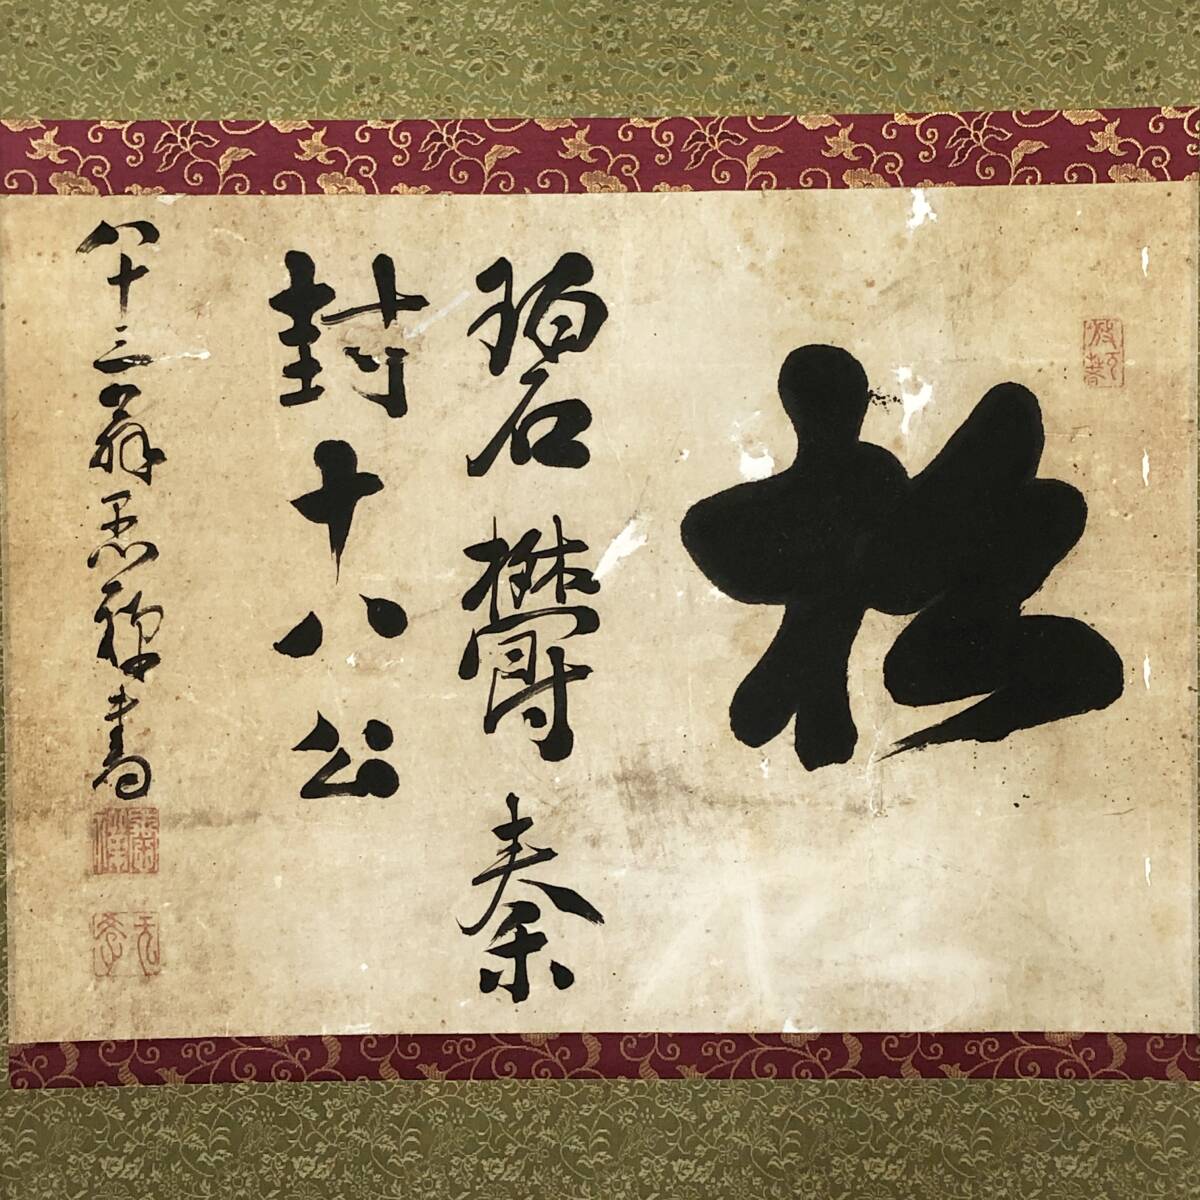 松
碧欝秦
封十八公
八十三翁愚禅書